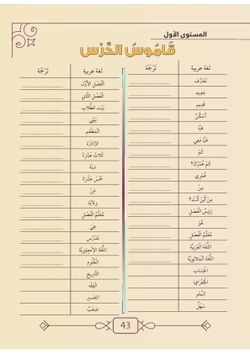 المستوى الأول
قَامُوسُ الدَّرْسِ
لغة عربية
تَرْجَمَة
تَعَارُف
جَدِيد
قَدِيم
أَسْكُنُ
هَيَّا
هَيَّا مَعِي
كَمْ
كَمْ عُمْرُكَ؟
عُمْرِي
مِنْ
مِنْ أَيْنَ أَنْتَ؟
رَئِيسُ الفَصْلِ
هُوَ
مُعَلِّمُ الفَصْلِ
اللُّغَةُ العَرَبِيَّة
اللُّغَةُ المَلَايُوِيَّة
الحِسَاب
الجُغْرَافِيَا
النَّحْو
سَهْلٌ
لغة عربية
تَرْجَمَة
الفَصْلُ الأَوَّل
الفَصْلُ الثَّانِي
بَيْتُ الطُّلَّاب
بَيْتِي
المَطْعَم
الإِدَارَة
ثَلَاثَ عَشْرَةَ
سَنَة
خَمْسَ عَشْرَةَ
عَنْ
وِلَايَة
مُعَلِّمُ الفَصْلِ
هِيَ
مُدَرِّس
اللُّغَةُ الإِنْجِلِيزِيَّة
العُلُوم
التَّارِيخ
الفِقْه
التفسير
صَعْبٌ
43